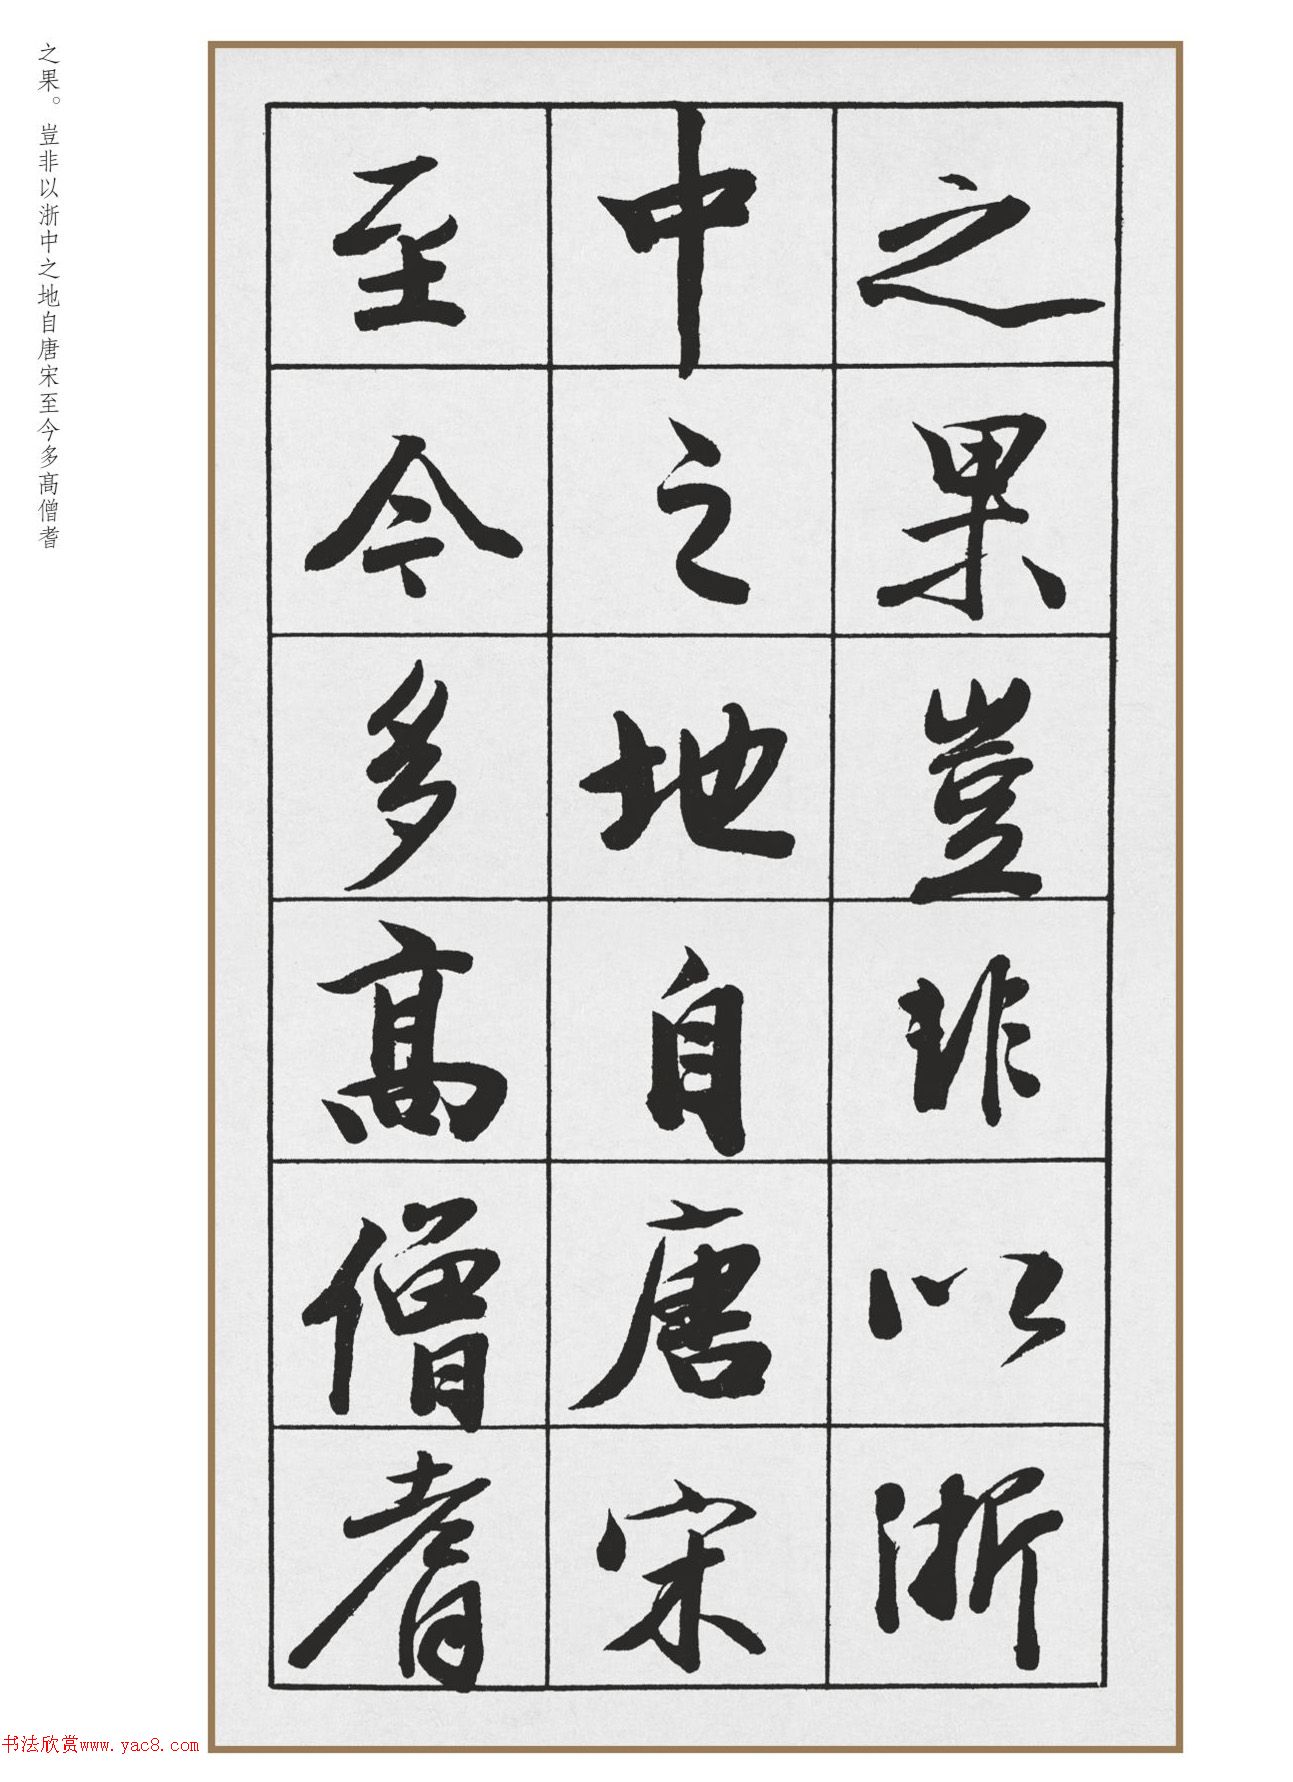 之果豈非以浙
中之地自唐宋
至今多髙僧耆
之果。豈非以浙中之地自唐宋至今多髙僧耆
书法欣赏www.yac8.com